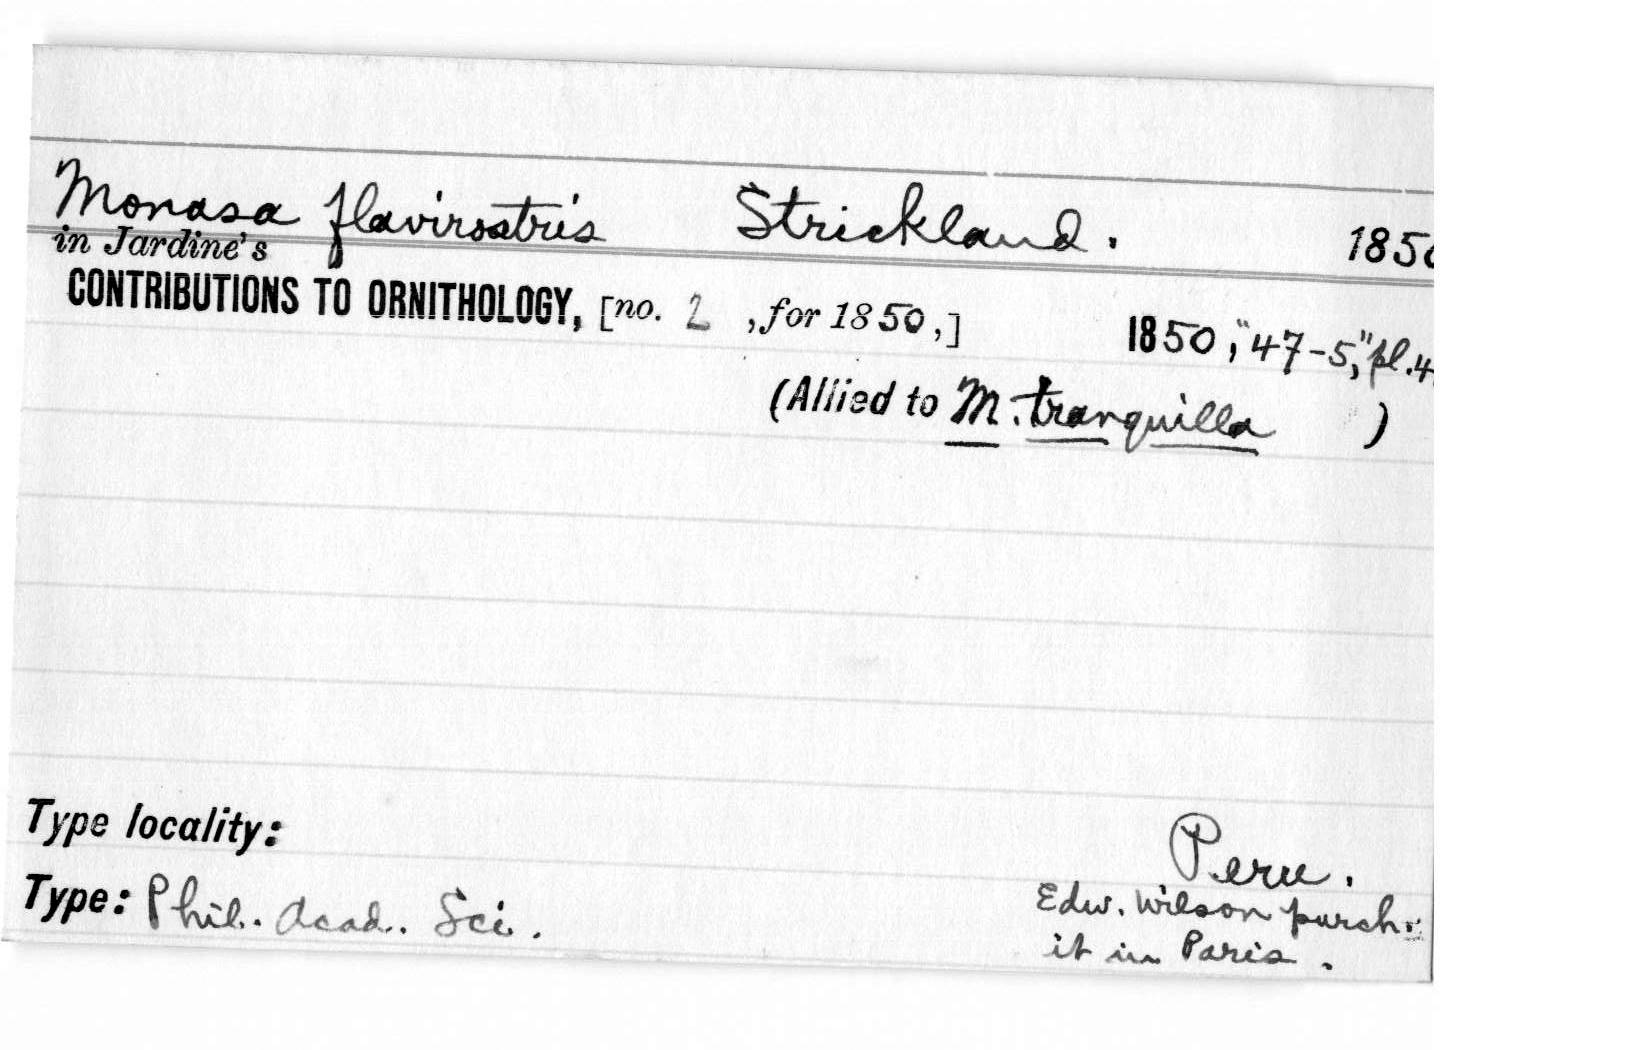 Monasa flavirostris Strickland. 1850
in Jardine's
CONTRIBUTIONS TO ORNITHOLOGY, [no. 2 , for 1850,] 1850, "47-5," pl.4
(Allied to M. tranquilla )
Type locality: Peru.
Type: Phil. Acad. Sci. Edw. Wilson purch.
it in Paris.